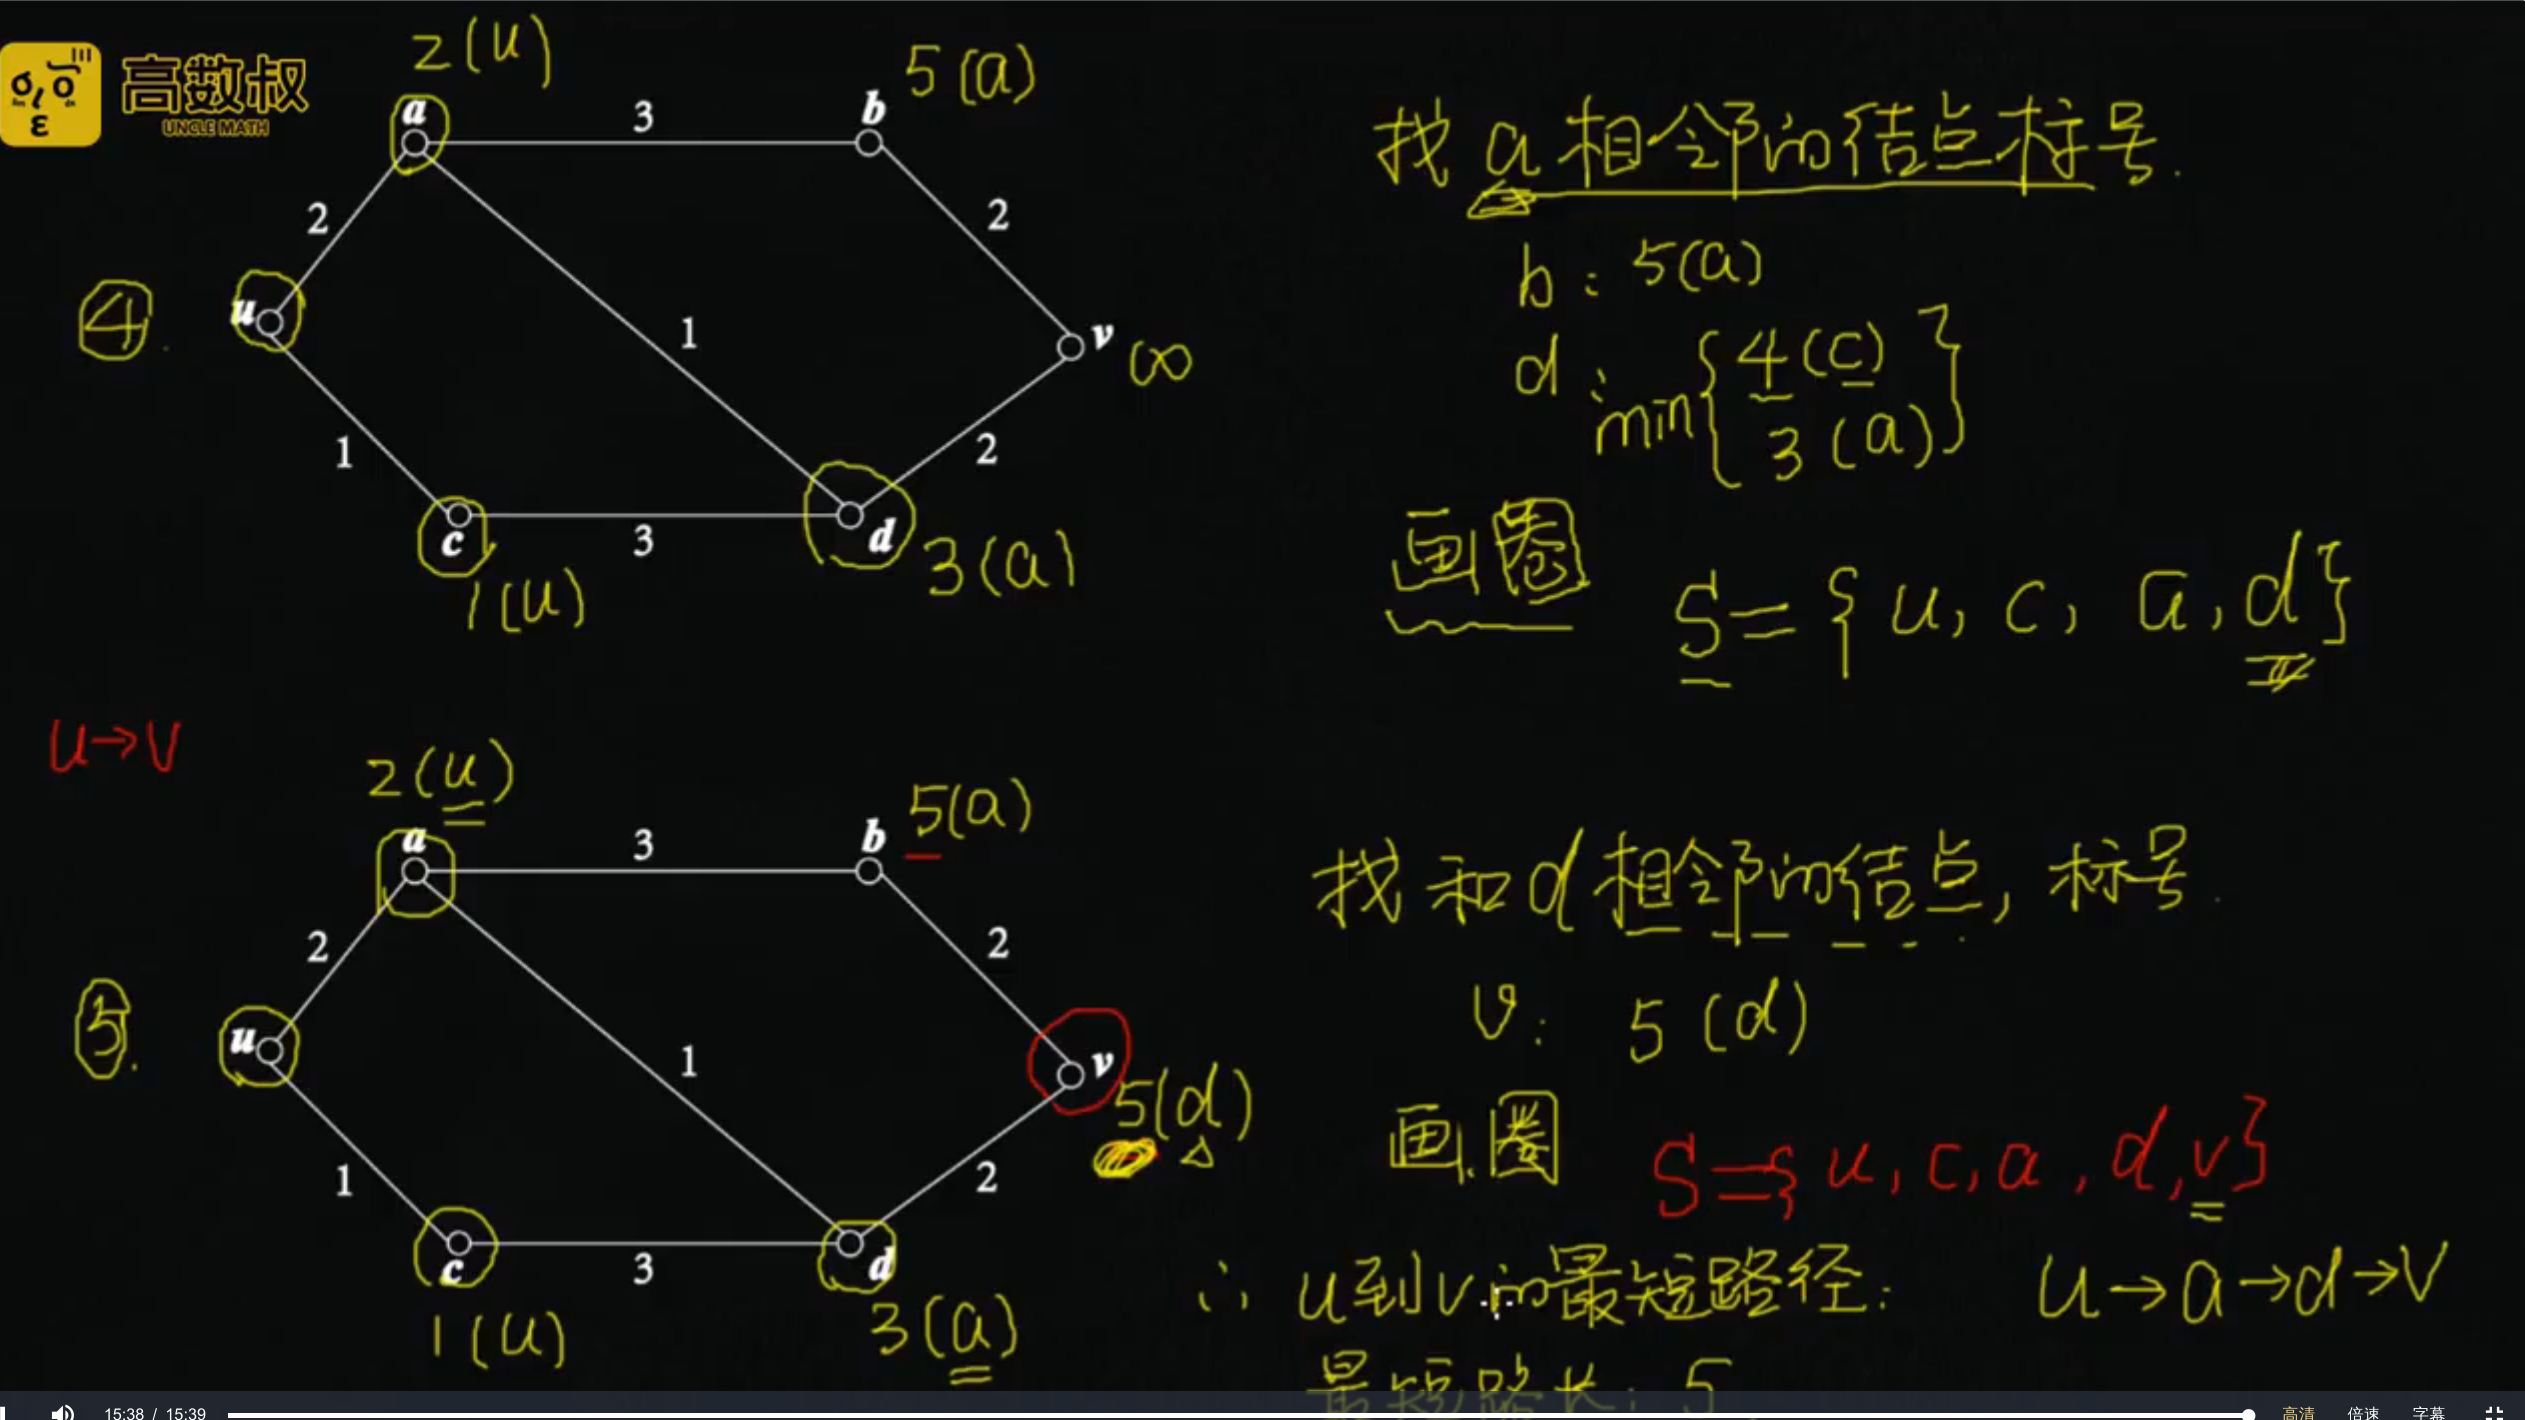 高数叔
UNCLE MATH
2(u)
5(a)
a
3
b
2
2
④.
u
1
v
∞
1
2
c
3
d
1(u)
3(a)
找a相邻的结点标号.
b: 5(a)
d: min{4(c)
3(a)}
画圈
S={u, c, a, d}
u→v
2(u)
5(a)
a
3
b
2
2
⑤.
u
1
v
5(d)
1
2
c
3
d
1(u)
3(a)
找和d相邻的结点, 标号.
v: 5(d)
画圈
S={u, c, a, d, v}
∴ u到v的最短路径: u→a→d→v
最短路长: 5
15:38 / 15:39
高清
倍速
字幕